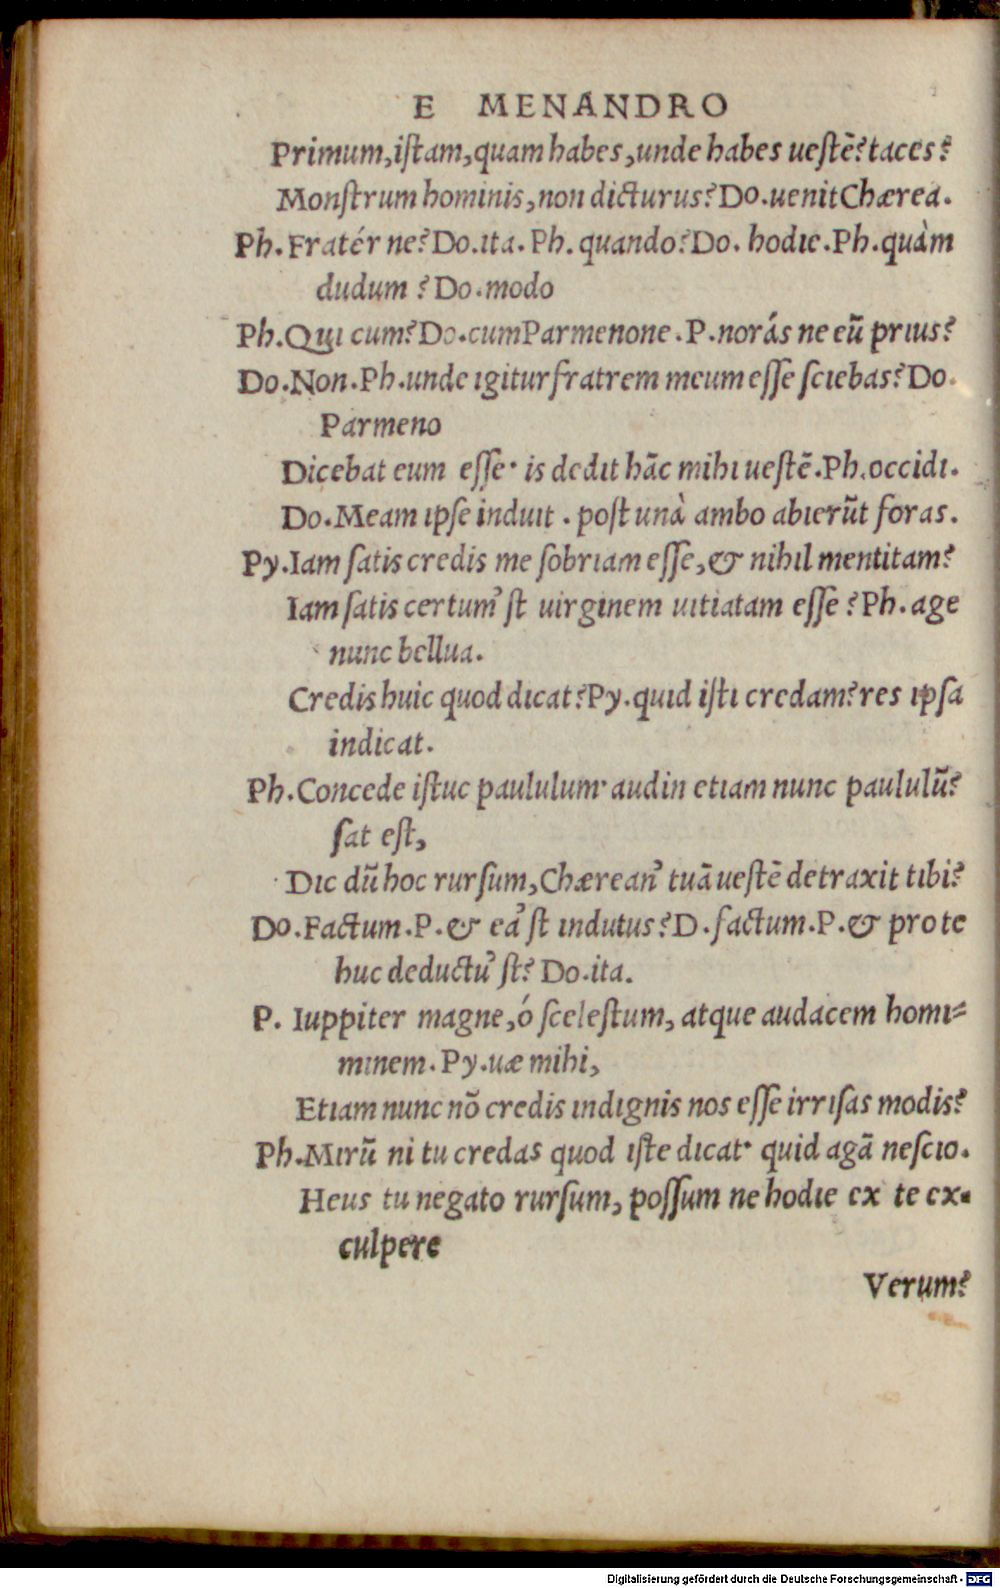 E MENANDRO
Primum,istam,quam habes,unde habes uestē?taces?
Monstrum hominis,non dicturus?Do.uenit Chærea.
Ph.Fratér ne?Do.ita.Ph.quando?Do.hodie.Ph.quàm
dudum ?Do.modo
Ph.Qui cum?Do.cum Parmenone.P.norás ne eū prius?
Do.Non.Ph.unde igitur fratrem meum esse sciebas?Do.
Parmeno
Dicebat eum esse· is dedit hāc mihi uestē.Ph.occidi.
Do.Meam ipse induit.post unà ambo abierūt foras.
Py.Iam satis credis me sobriam esse,& nihil mentitam?
Iam satis certum' st uirginem uitiatam esse ?Ph.age
nunc bellua.
Credis huic quod dicat?Py.quid isti credam?res ipsa
indicat.
Ph.Concede istuc paululum· audin etiam nunc paululū?
sat est,
Dic dū hoc rursum,Chærean' tuā uestē detraxit tibi?
Do.Factum.P.& ea' st indutus?D.factum.P.& pro te
huc deductu' st?Do.ita.
P. Iuppiter magne,ó scelestum, atque audacem homi=
minem.Py.uæ mihi,
Etiam nunc nō credis indignis nos esse irrisas modis?
Ph.Mirū ni tu credas quod iste dicat· quid agā nescio.
Heus tu negato rursum, possum ne hodie ex te ex=
culpere
Verum?
Digitalisierung gefördert durch die Deutsche Forschungsgemeinschaft - DFG